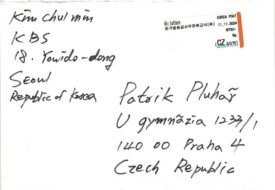 Kim chul min
KBS
18. Yowido-dong
Seoul
Republic of Korea
KOREA POST
Air Letters
CZ
Patrik Pluhař
U gymnázia 1233/1
140 00 Praha 4
Czech Republic